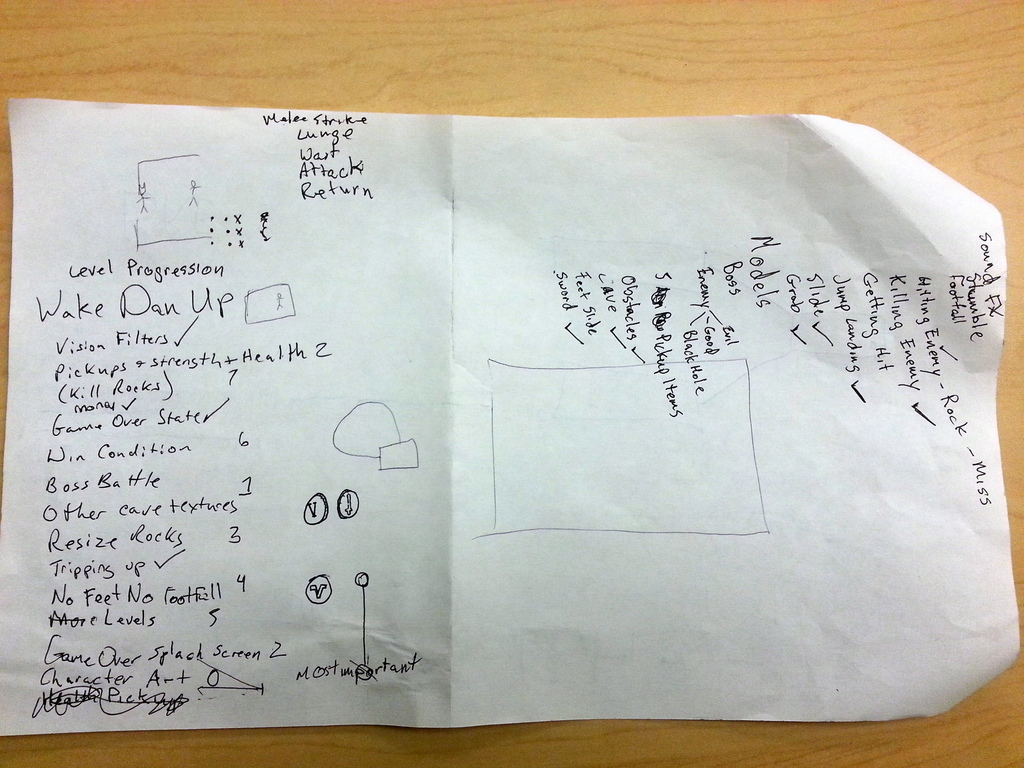 Melee Strike
Lunge
Wait
Attack
Return
Level Progression
Wake Dan Up
Vision Filters ✓
Pickups + strength + Health 2
(Kill Rocks) 7
✓
Game Over State ✓
Win Condition 6
Boss Battle
Other cave textures 1
Resize Rocks 3
Tripping up ✓
No Feet No Footfall 4
More Levels 5
Game Over Splash Screen 2
Character Art 0
Health Pickup
Most important
Sound FX
Stumble
Footfall
Hitting Enemy ✓ - Rock - Miss
Killing Enemy ✓
Getting Hit
Jump Landing ✓
Slide ✓
Grab ✓
Models
Boss
Enemy - Good Evil
Black Hole
Pickup Items
Obstacles ✓
Cave ✓
Feet Slide
Sword ✓